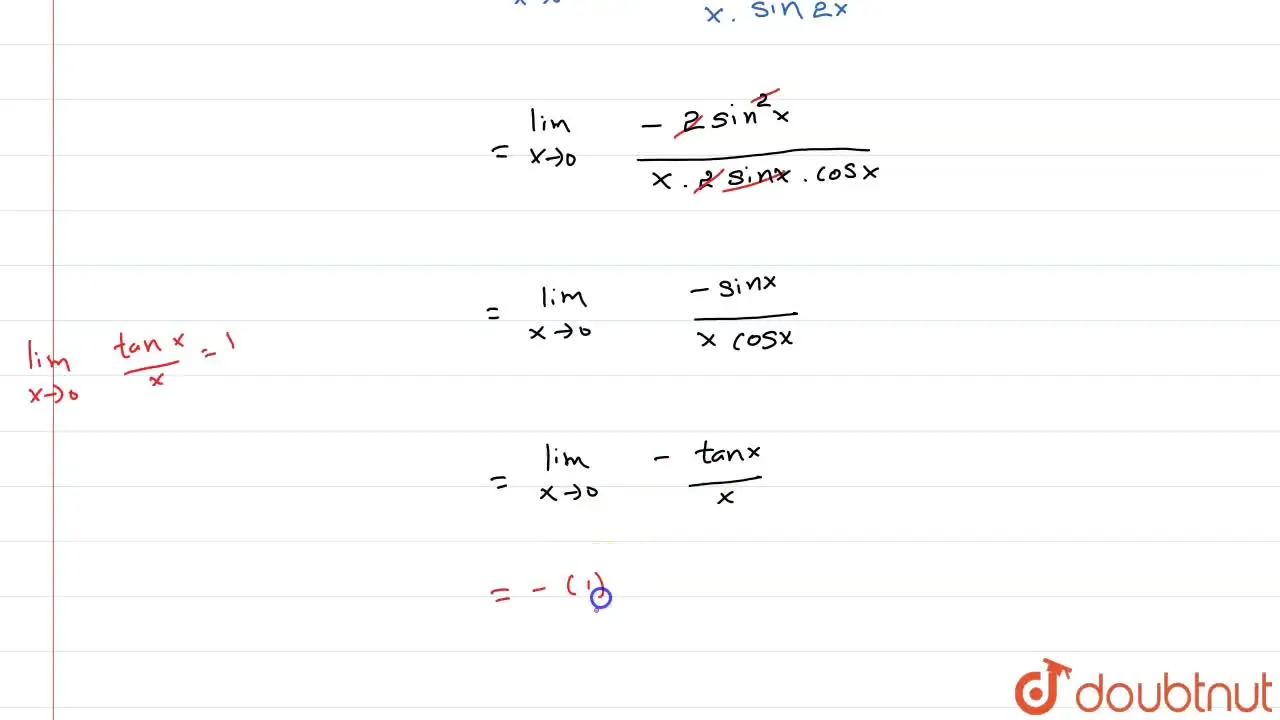 x . sin 2x
= lim x→0 - 2 sin²x / x . 2 sinx . cosx
= lim x→0 - sinx / x cosx
lim x→0 tan x / x = 1
= lim x→0 - tanx / x
= - (1)
doubtnut